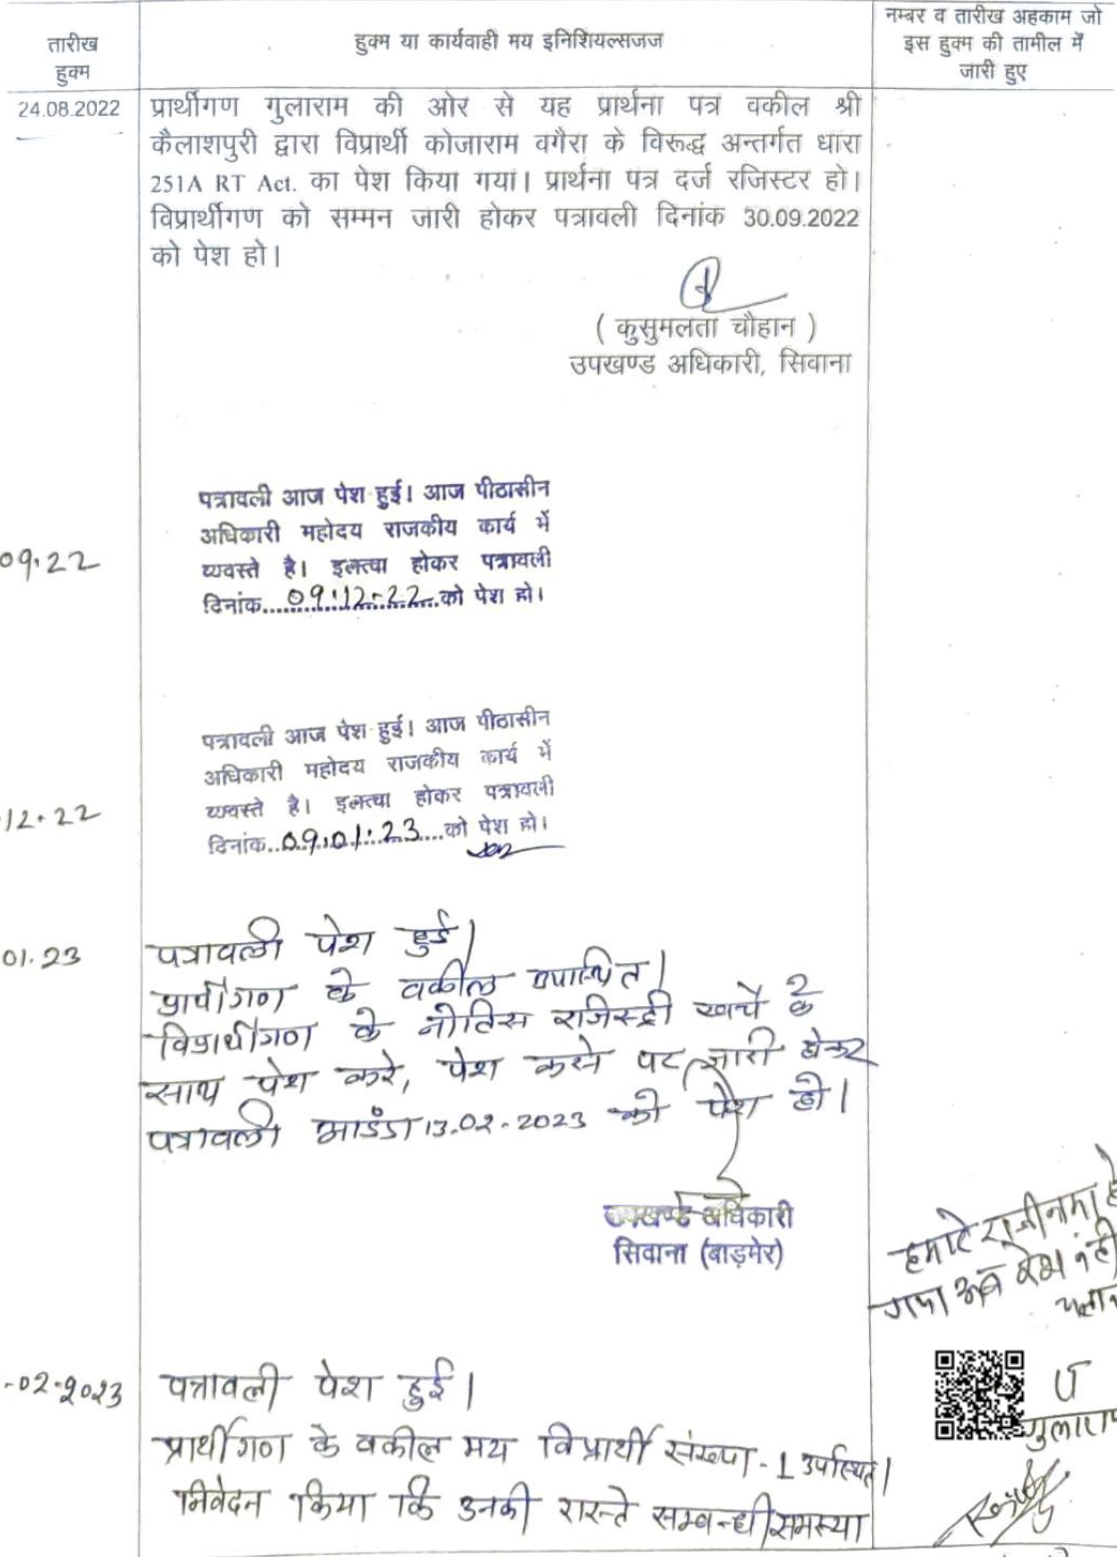 तारीख
हुक्म
हुक्म या कार्यवाही मय इनिशियल्सजज
नम्बर व तारीख अहकाम जो
इस हुक्म की तामील में
जारी हुए
24.08.2022
प्रार्थीगण गुलाराम की ओर से यह प्रार्थना पत्र वकील श्री
कैलाशपुरी द्वारा विप्रार्थी कोजाराम वगैरा के विरूद्ध अन्तर्गत धारा
251A RT Act. का पेश किया गया। प्रार्थना पत्र दर्ज रजिस्टर हो।
विप्रार्थीगण को सम्मन जारी होकर पत्रावली दिनांक 30.09.2022
को पेश हो।
( कुसुमलता चौहान )
उपखण्ड अधिकारी, सिवाना
09.22
पत्रावली आज पेश हुई। आज पीठासीन
अधिकारी महोदय राजकीय कार्य में
व्यवस्ते है। इलत्वा होकर पत्रावली
दिनांक....09.12.22....को पेश हो।
12.22
पत्रावली आज पेश हुई। आज पीठासीन
अधिकारी महोदय राजकीय कार्य में
व्यवस्ते है। इलत्वा होकर पत्रावली
दिनांक...09.01.23....को पेश हो।
01.23
पत्रावली पेश हुई।
प्रार्थीगण के वकील उपस्थित।
विप्रार्थीगण के नोटिस रजिस्ट्री खर्चे के
साथ पेश करे, पेश करने पर जारी होकर
पत्रावली आईंदा 13.02.2023 को पेश हो।
उपखण्ड अधिकारी
सिवाना (बाड़मेर)
हमारे राजीनामा हो
गया अब केश नही
-02-2023
पत्रावली पेश हुई।
प्रार्थीगण के वकील मय विप्रार्थी संख्या-1 उपस्थित।
निवेदन किया कि उनकी रास्ते सम्बन्धी समस्या